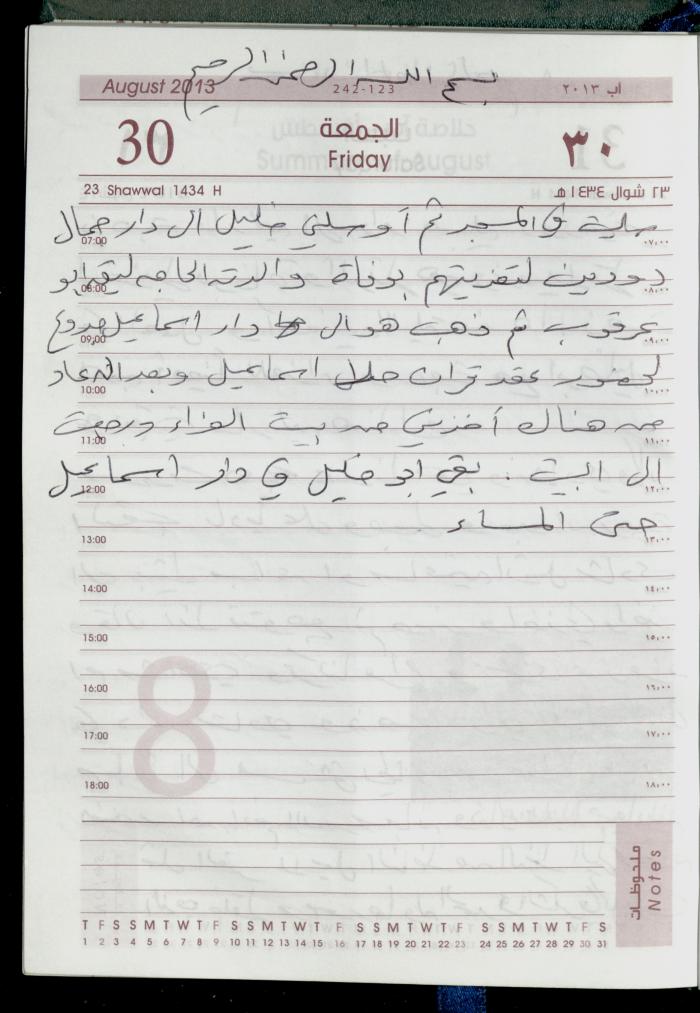 بسم الله الرحمن الرحيم
August 2013 242-123 آب ٢٠١٣
30 الجمعة ٣٠
Friday
23 Shawwal 1434 H ٢٣ شوال ١٤٣٤ هـ
صليت في المسجد ثم أوصلني خليل الى دار جمال
07:00 ٠٧,٠٠
دودين لتعزيتهم بوفاة والدته الحاجه ابو
08:00 ٠٨,٠٠
عرقوب ثم ذهب هو الى دار اسماعيل
09:00 ٠٩,٠٠
لحضور عقد قران اسماعيل وبعد ان عاد
10:00 ١٠,٠٠
من هناك أخذني من بيت العزاء ورجعت
11:00 ١١,٠٠
الى البيت . بقي ابو خليل في دار اسماعيل
12:00 ١٢,٠٠
حتى المساء .
13:00 ١٣,٠٠
14:00 ١٤,٠٠
15:00 ١٥,٠٠
16:00 ١٦,٠٠
17:00 ١٧,٠٠
18:00 ١٨,٠٠
8
ملحوظات
Notes
T F S S M T W T F S S M T W T F S S M T W T F S S M T W T F S
1 2 3 4 5 6 7 8 9 10 11 12 13 14 15 16 17 18 19 20 21 22 23 24 25 26 27 28 29 30 31